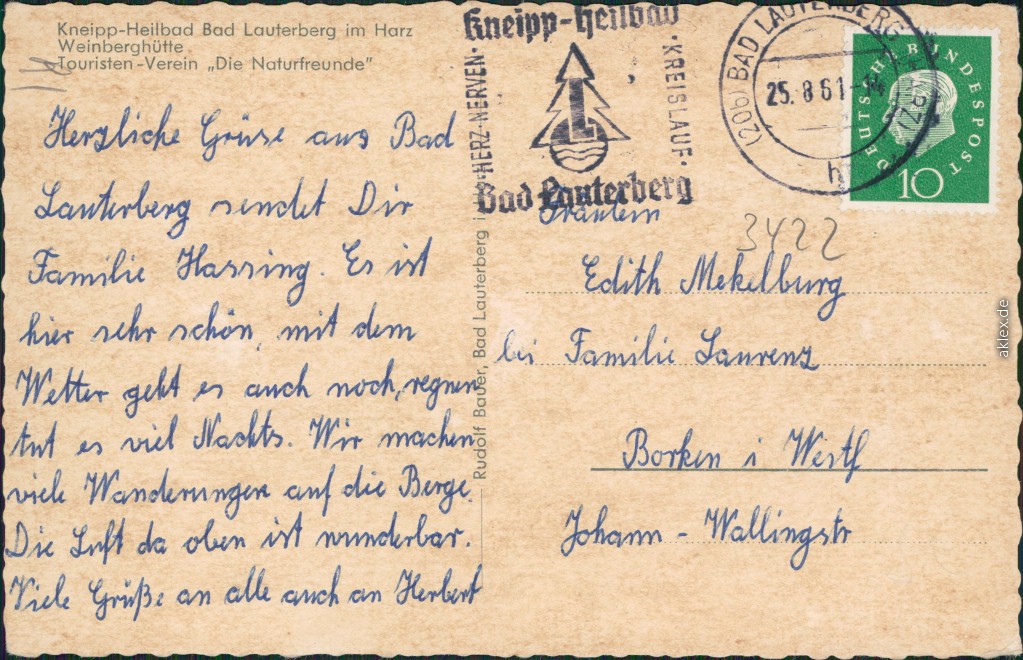 Kneipp-Heilbad Bad Lauterberg im Harz
Weinberghütte
Touristen-Verein „Die Naturfreunde"
Herzliche Grüse aus Bad
Lauterberg sendet Dir
Familie Hassing. Es ist
hier sehr schön, mit dem
Wetter geht es auch noch, regnen
tut es viel Nachts. Wir machen
viele Wanderungen auf die Berge.
Die Luft da oben ist wunderbar.
Viele Grüße an alle auch an Herbert
Rudolf Bauer, Bad Lauterberg
Kneipp-Heilbad
·HERZ-NERVEN·
·KREISLAUF·
L
Bad Lauterberg
(20b) BAD LAUTERBERG
25.8.61-14
h
DEUTSCHE BUNDESPOST
10
3422
Fräulein
Edith Mekelburg
bei Familie Laurenz
Borken i Westf
Johann-Wallingstr
aklex.de